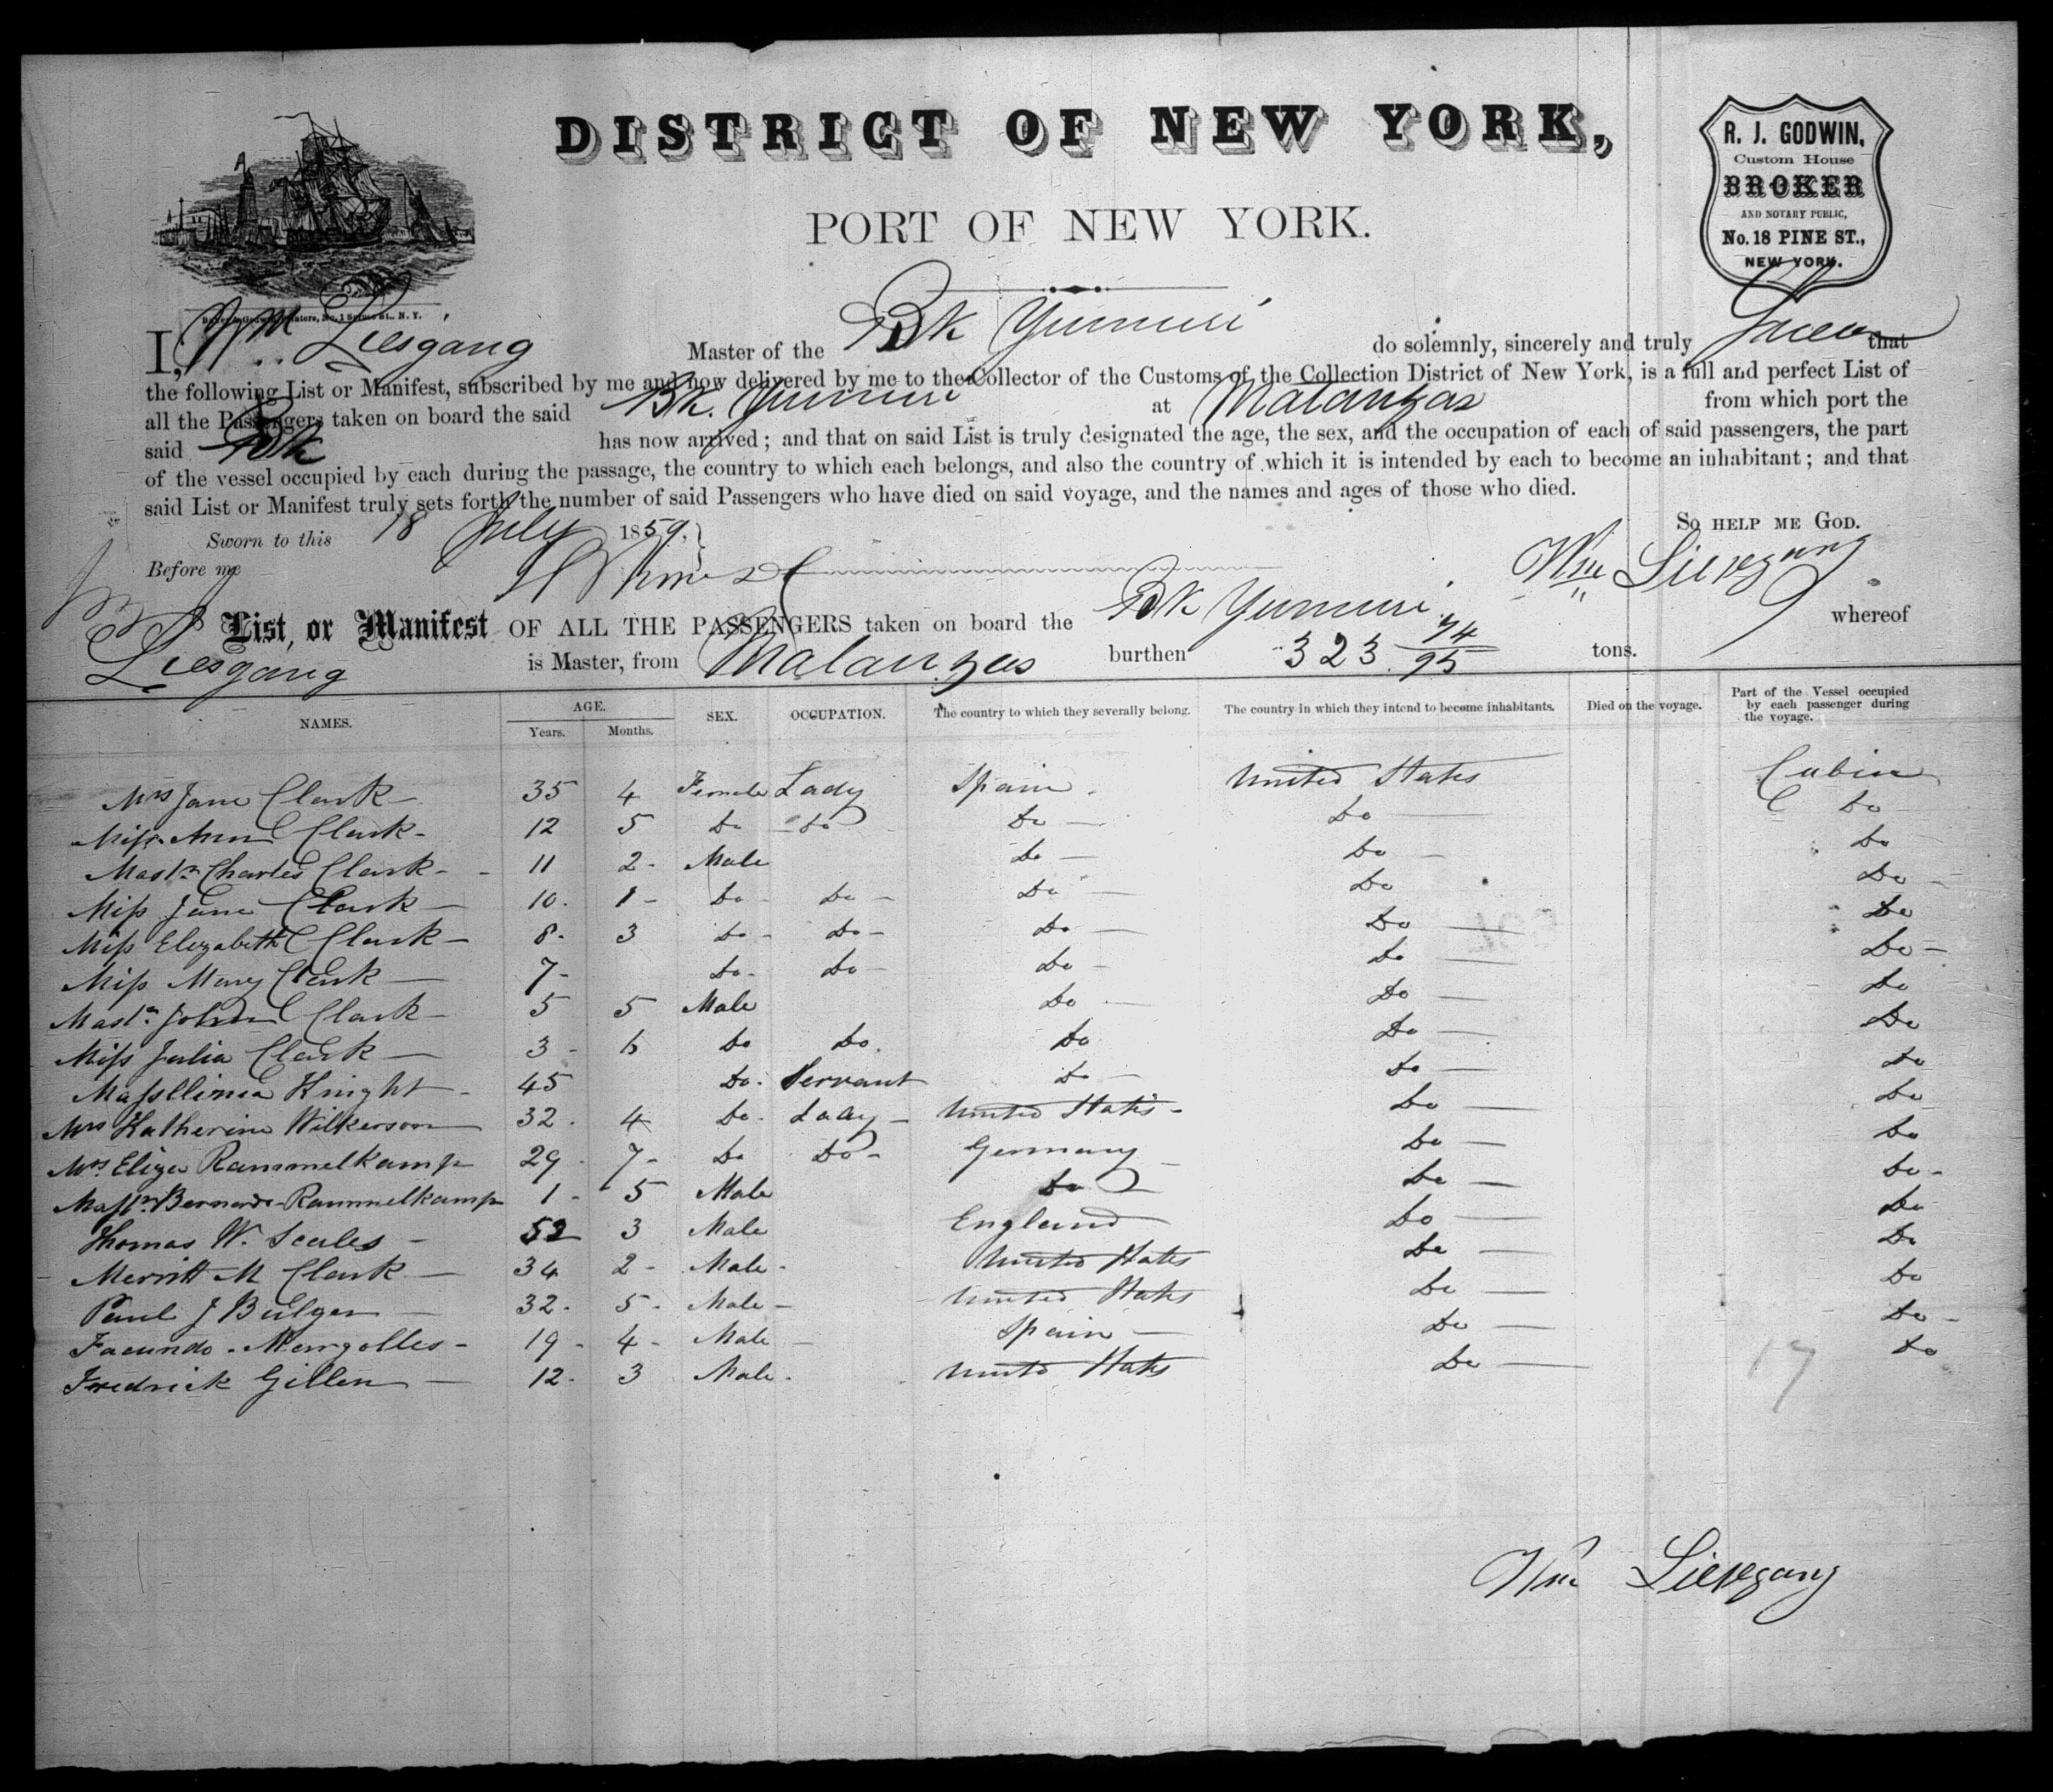 DISTRICT OF NEW YORK,
PORT OF NEW YORK.
R. J. GODWIN,
Custom House
BROKER
AND NOTARY PUBLIC,
No. 18 PINE ST.,
NEW YORK.
I, Wm Liesgang Master of the Bk Yumuri do solemnly, sincerely and truly Swear that
the following List or Manifest, subscribed by me and now delivered by me to the Collector of the Customs of the Collection District of New York, is a full and perfect List of
all the Passengers taken on board the said Bk. Yumuri at Matanzas from which port the
said Bk has now arrived; and that on said List is truly designated the age, the sex, and the occupation of each of said passengers, the part
of the vessel occupied by each during the passage, the country to which each belongs, and also the country of which it is intended by each to become an inhabitant; and that
said List or Manifest truly sets forth the number of said Passengers who have died on said voyage, and the names and ages of those who died.
So HELP ME GOD.
Sworn to this 18 July 1859.
Before me
Wm Liesegang
List, or Manifest OF ALL THE PASSENGERS taken on board the Bk Yumuri whereof
Liesgang is Master, from Matanzas burthen 323 74/95 tons.
NAMES. AGE. SEX. OCCUPATION. The country to which they severally belong. The country in which they intend to become inhabitants. Died on the voyage. Part of the Vessel occupied by each passenger during the voyage.
Years. Months.
Mrs Jane Clark 35 4 Female Lady Spain United States Cabin
Miss Ann Clark 12 5 Do Do Do Do Do
Mastr Charles Clark 11 2 Male Do Do Do
Miss Jane Clark 10 1 Do Do Do Do Do
Miss Elizabeth Clark 8 3 Do Do Do Do Do
Miss Mary Clark 7 Do Do Do Do Do
Mastr John Clark 5 5 Male Do Do Do
Miss Julia Clark 3 6 Do Do Do Do Do
Knight 45 Do Servant Do Do Do
Mrs Katherine Wilkerson 32 4 Do Lady United States Do Do
Mrs Eliza Rammelkamp 29 7 Do Do Germany Do Do
Mastr Bernard Rammelkamp 1 5 Male Do Do Do
Thomas W. Scales 52 3 Male England Do Do
Merritt M Clark 34 2 Male United States Do Do
Paul J Bulger 32 5 Male United States Do Do
Facundo 19 4 Male Spain Do Do
Fredrick Gillen 12 3 Male United States Do Do
17
Wm Liesegang